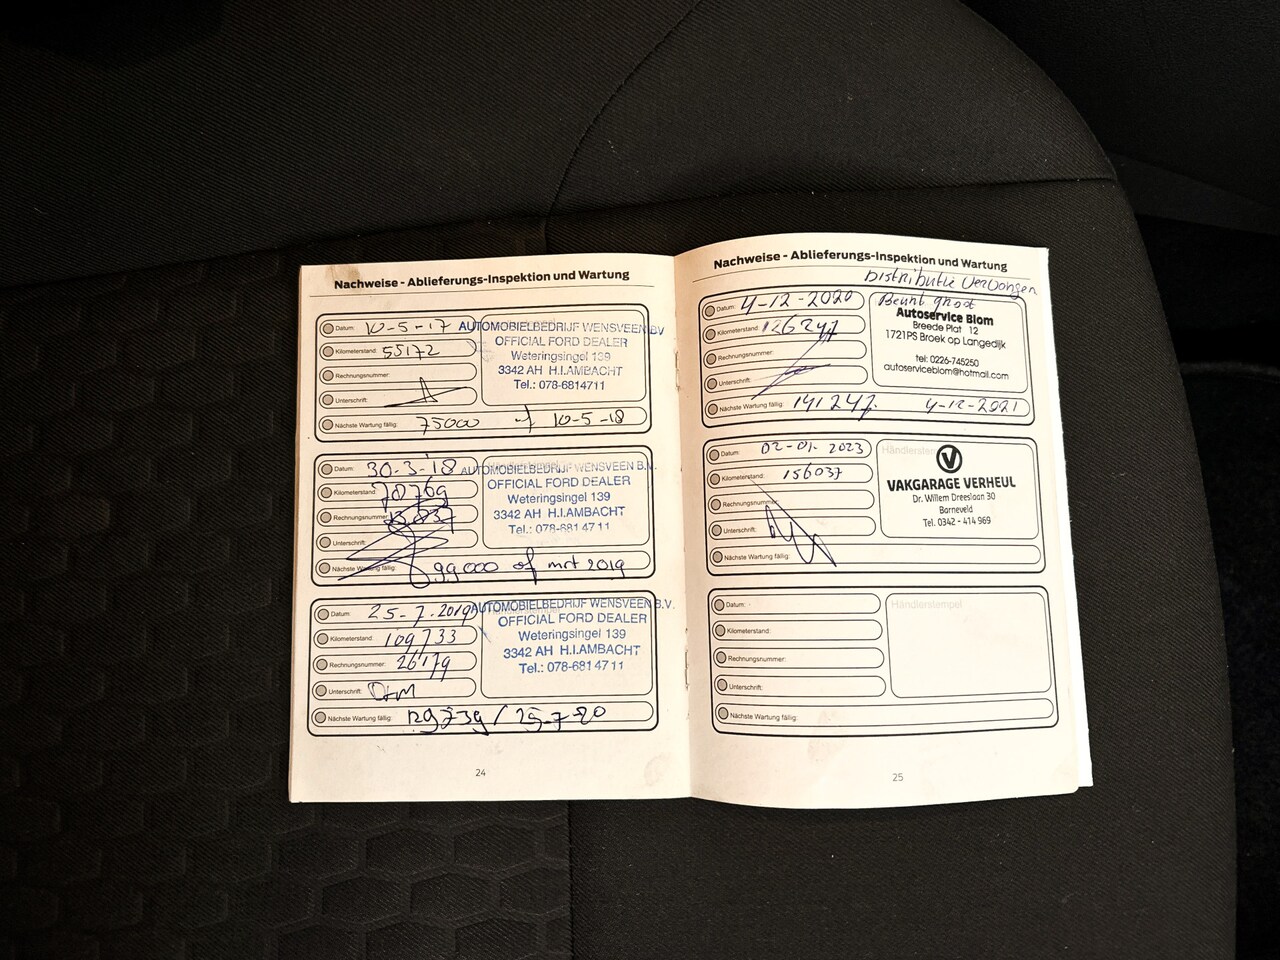 Nachweise - Ablieferungs-Inspektion und Wartung
Datum: 10-5-17
Kilometerstand: 55172
Rechnungsnummer:
Unterschrift:
Nächste Wartung fällig: 75000 of 10-5-18
AUTOMOBIELBEDRIJF WENSVEEN BV
OFFICIAL FORD DEALER
Weteringsingel 139
3342 AH H.I.AMBACHT
Tel.: 078-6814711
Datum: 30-3-'18
Kilometerstand: 78769
Rechnungsnummer:
Unterschrift:
Nächste Wartung fällig: 99000 of mrt 2019
AUTOMOBIELBEDRIJF WENSVEEN B.V.
OFFICIAL FORD DEALER
Weteringsingel 139
3342 AH H.I.AMBACHT
Tel.: 078-681 47 11
Datum: 25-7-2019
Kilometerstand: 109733
Rechnungsnummer: 26179
Unterschrift:
Nächste Wartung fällig: 129739 / 25-7-20
AUTOMOBIELBEDRIJF WENSVEEN B.V.
OFFICIAL FORD DEALER
Weteringsingel 139
3342 AH H.I.AMBACHT
Tel.: 078-681 47 11
24
Nachweise - Ablieferungs-Inspektion und Wartung
Distributie vervangen
Beurt groot
Datum: 4-12-2020
Kilometerstand: 126247
Rechnungsnummer:
Unterschrift:
Nächste Wartung fällig: 141247 4-12-2021
Autoservice Blom
Breede Plat 12
1721PS Broek op Langedijk
tel: 0226-745250
autoserviceblom@hotmail.com
Datum: 02-01-2023
Kilometerstand: 156037
Rechnungsnummer:
Unterschrift:
Nächste Wartung fällig:
Händlerstempel
V
VAKGARAGE VERHEUL
Dr. Willem Dreeslaan 30
Barneveld
Tel. 0342 - 414 969
Datum:
Kilometerstand:
Rechnungsnummer:
Unterschrift:
Nächste Wartung fällig:
Händlerstempel
25